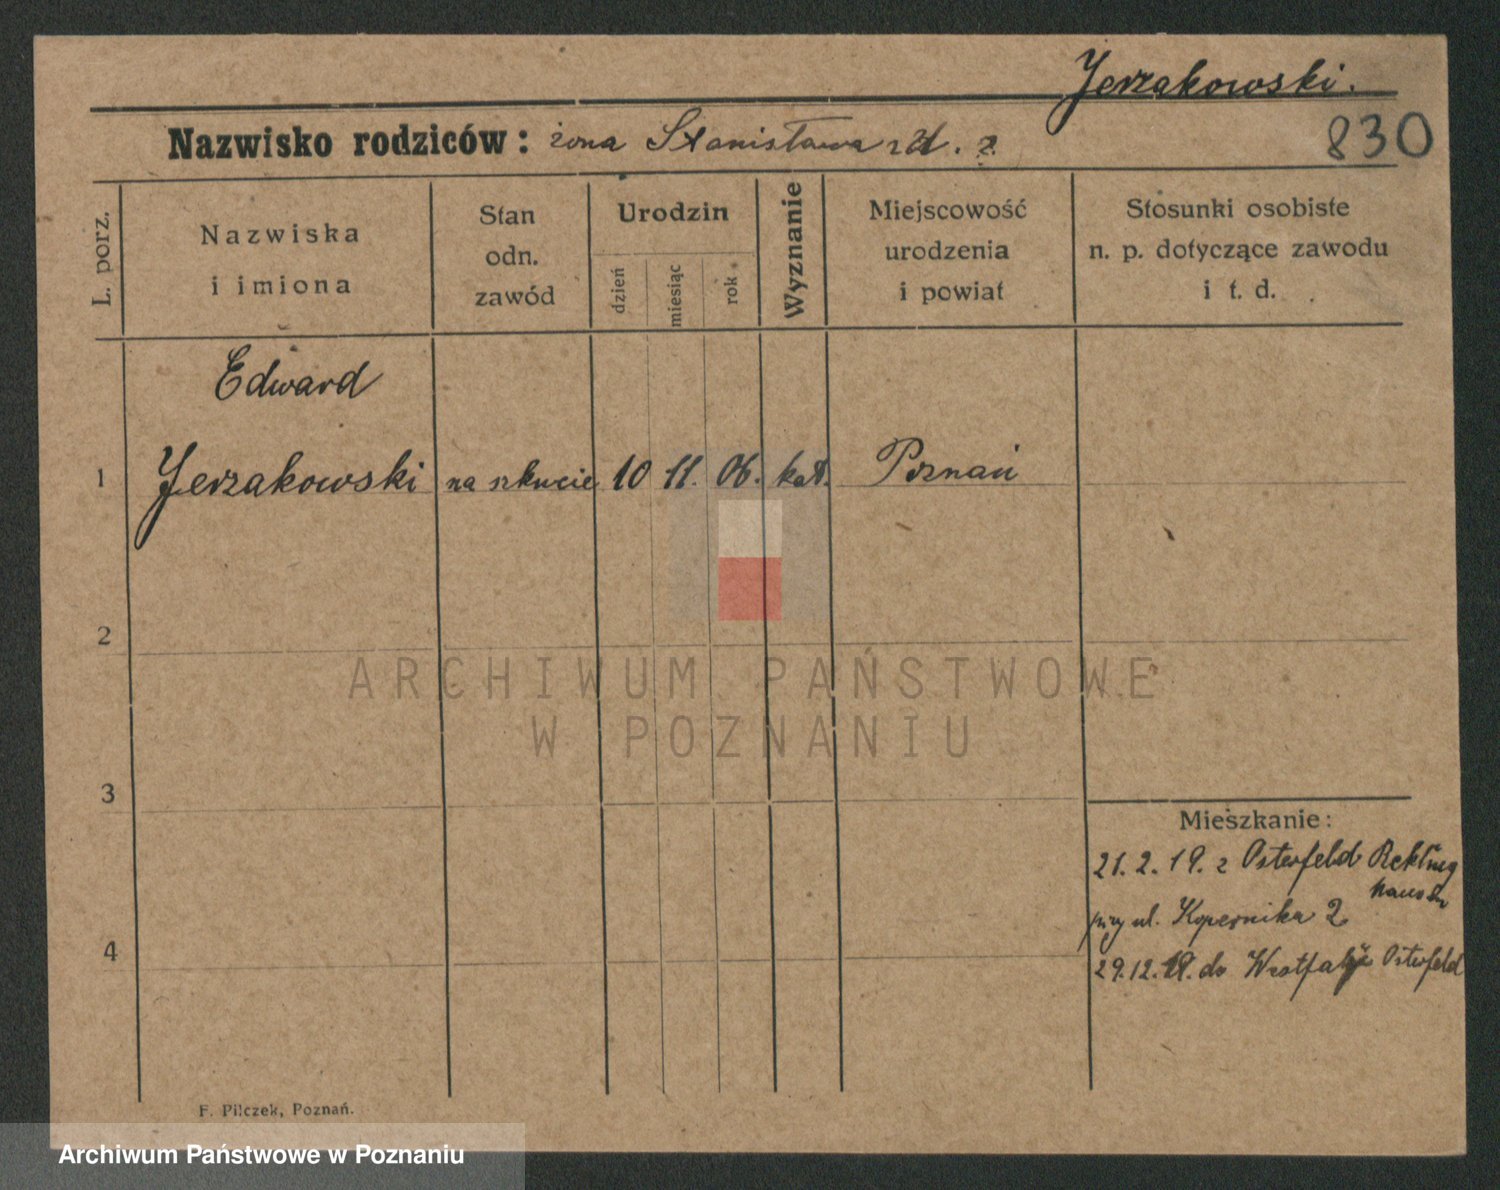 Jerzakowski.
Nazwisko rodziców: żona Stanisława
830
L. porz.
Nazwiska
i imiona
Stan
odn.
zawód
Urodzin
dzień
miesiąc
rok
Wyznanie
Miejscowość
urodzenia
i powiat
Stosunki osobiste
n. p. dotyczące zawodu
i t. d.
Edward
1 Jerzakowski na 10 11. 06. kat. Poznań
2
ARCHIWUM PAŃSTWOWE
W POZNANIU
3
Mieszkanie:
21. 2. 19. z Osterfeld
przy ul. Kopernika 2
4
29.12.19. do Osterfeld
F. Pilczek, Poznań.
Archiwum Państwowe w Poznaniu